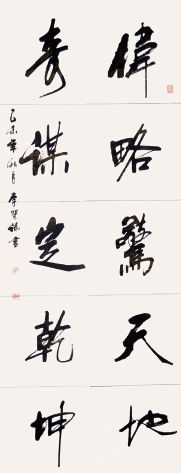 偉略驚天地
奇謀定乾坤
乙未年秋月李書